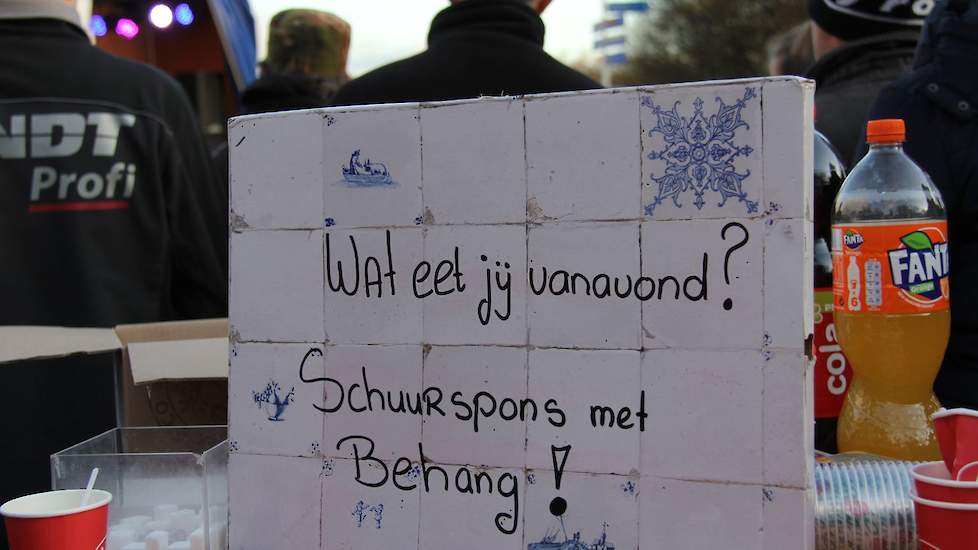 NDT
Profi
Wat eet jÿ vanavond?
Schuurspons met
Behang!
FANTA
FANTA
Orange
cola